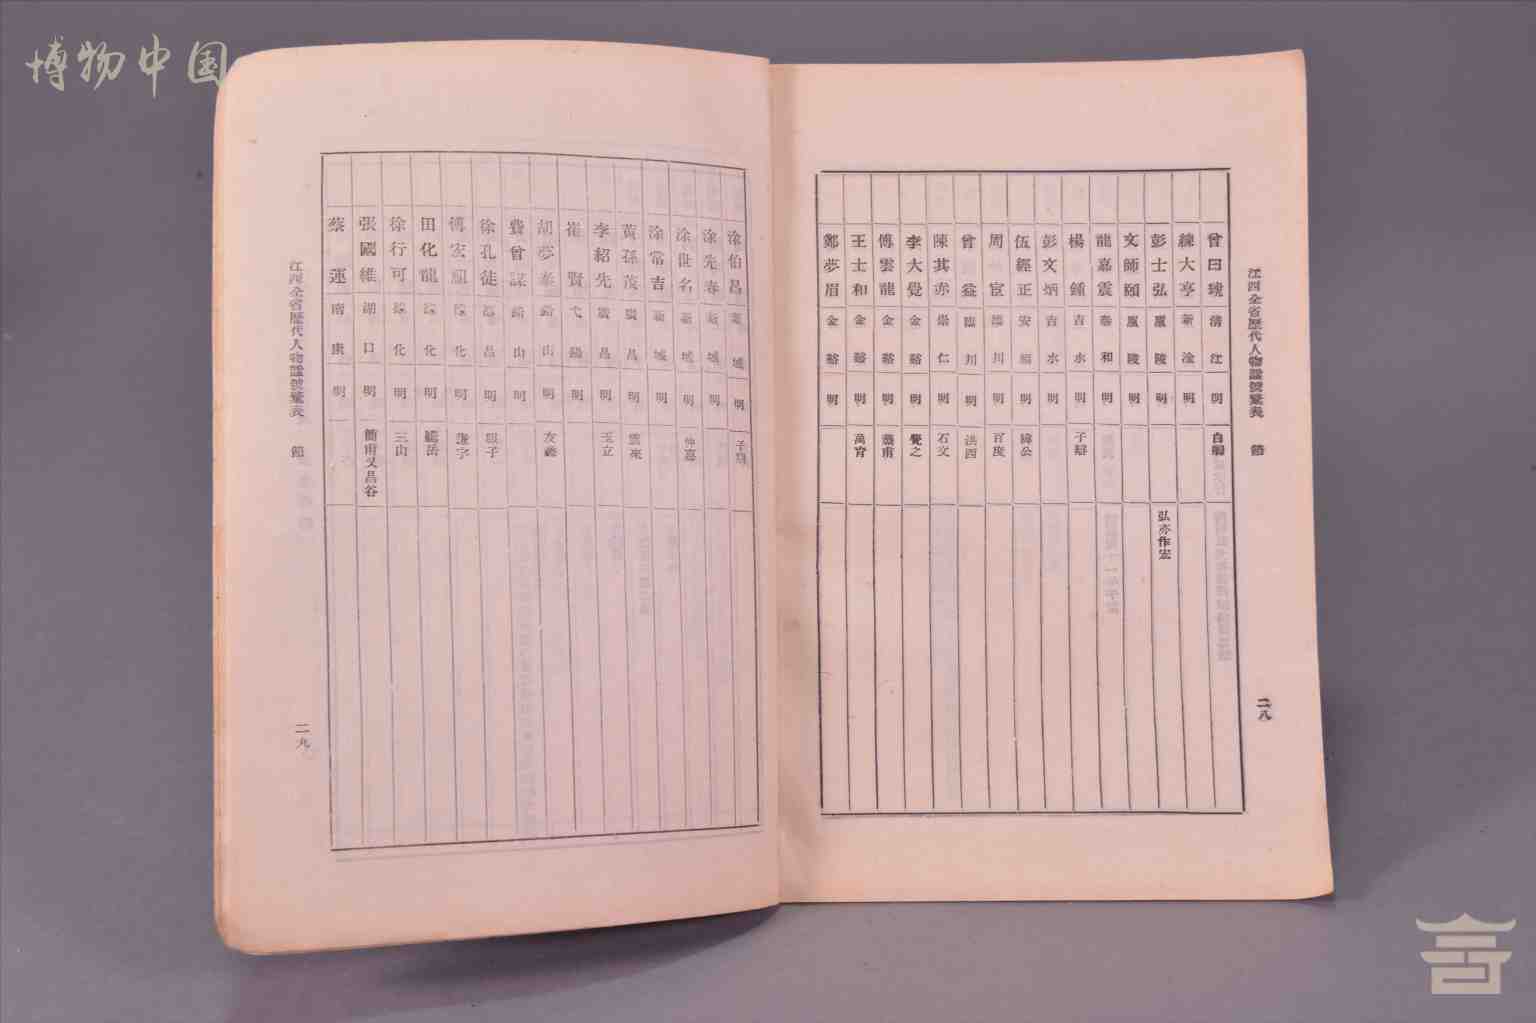 博物中国
江西全省歷代人物諡號彙表 節 二八
曾曰琥 清江 明
練大亨 新淦 明
彭士弘 廬陵 明 弘亦作宏
文師頤 廬陵 明
龍嘉震 泰和 明
楊鍾 吉水 明
彭文炳 吉水 明
伍經正 安福 明
周宦 臨川 明 百度
曾益 臨川 明 洪四
陳其赤 崇仁 明 石文
李大覺 金谿 明 覺之
傅雲龍 金谿 明
王士和 金谿 明 萬育
鄭夢眉 金谿 明
涂伯昌 新城 明
涂先春 新城 明
涂世名 新城 明 仲嘉
涂常吉 新城 明
黃孫茂 廣昌 明
李紹先 廣昌 明 玉立
崔賢 弋陽 明
胡夢泰 鉛山 明 友蠡
費曾謀 鉛山 明
徐孔徒 明
傅宏 明
田化龍 明
徐行可 明 三山
張國維 湖口 明 簡甫又昌谷
蔡運 南康 明
江西全省歷代人物諡號彙表 節 二九